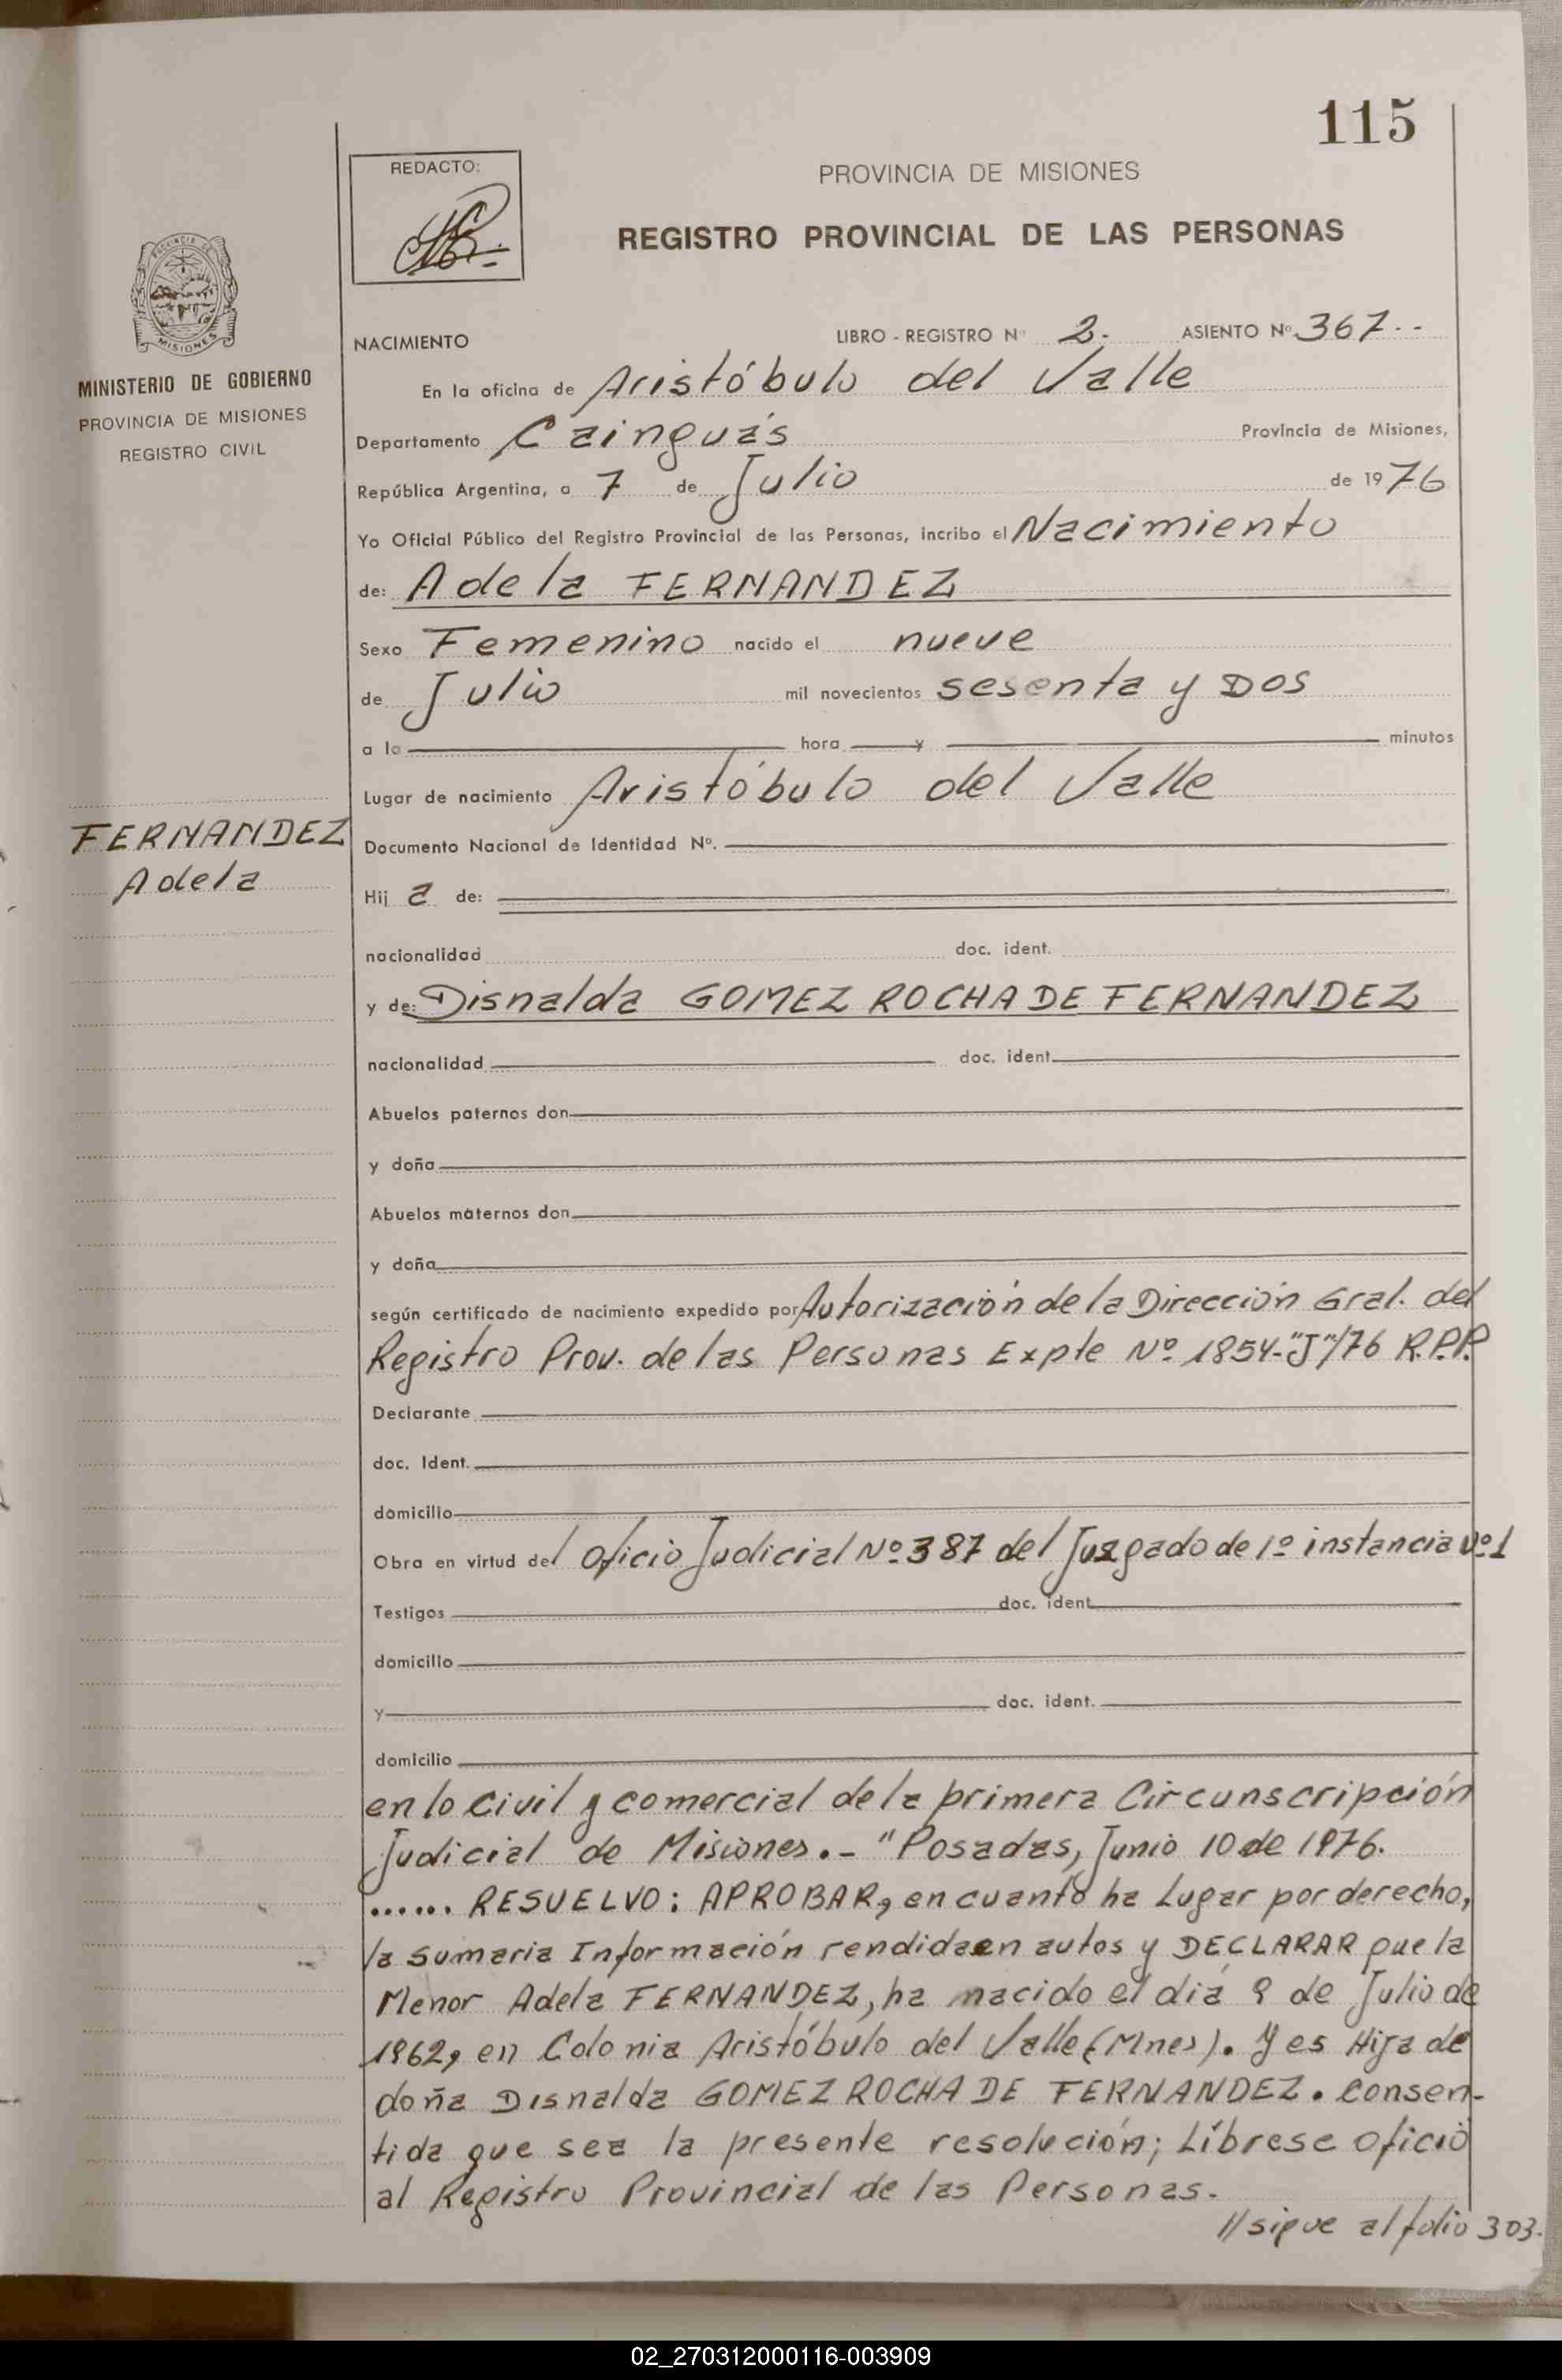 115
REDACTO:
PROVINCIA DE MISIONES
REGISTRO PROVINCIAL DE LAS PERSONAS
PROVINCIA DE
MISIONES
MINISTERIO DE GOBIERNO
PROVINCIA DE MISIONES
REGISTRO CIVIL
NACIMIENTO LIBRO - REGISTRO Nº 2. ASIENTO Nº 367--
En la oficina de Aristóbulo del Valle
Departamento Cainguás Provincia de Misiones,
República Argentina, a 7 de Julio de 1976
Yo Oficial Público del Registro Provincial de las Personas, incribo el Nacimiento
de: Adela FERNANDEZ
Sexo Femenino nacido el nueve
de Julio mil novecientos sesenta y Dos
a la hora y minutos
Lugar de nacimiento Aristóbulo del Valle
FERNANDEZ
Adela
Documento Nacional de Identidad Nº.
Hij a de:
nacionalidad doc. ident.
y de: Disnalda GOMEZ ROCHA DE FERNANDEZ
nacionalidad doc. ident.
Abuelos paternos don
y doña
Abuelos maternos don
y doña
según certificado de nacimiento expedido por Autorización de la Dirección Gral. del
Registro Prov. de las Personas Expte Nº 1854-"J"/76 R.P.P.
Declarante
doc. Ident.
domicilio
Obra en virtud del Oficio Judicial Nº 387 del Juzgado de 1º instancia Nº 1
Testigos doc. ident.
domicilio
y doc. ident.
domicilio
en lo civil y comercial de la primera Circunscripción
Judicial de Misiones.- "Posadas, Junio 10 de 1976.
...... RESUELVO: APROBAR, en cuanto ha Lugar por derecho,
la Sumaria Información rendida en autos y DECLARAR que la
Menor Adela FERNANDEZ, ha nacido el día 9 de Julio de
1962, en Colonia Aristóbulo del Valle (Mnes). Y es Hija de
doña Disnalda GOMEZ ROCHA DE FERNANDEZ. Consen-
tida que sea la presente resolución; Líbrese oficio
al Registro Provincial de las Personas.
//sigue al folio 303.
02_270312000116-003909